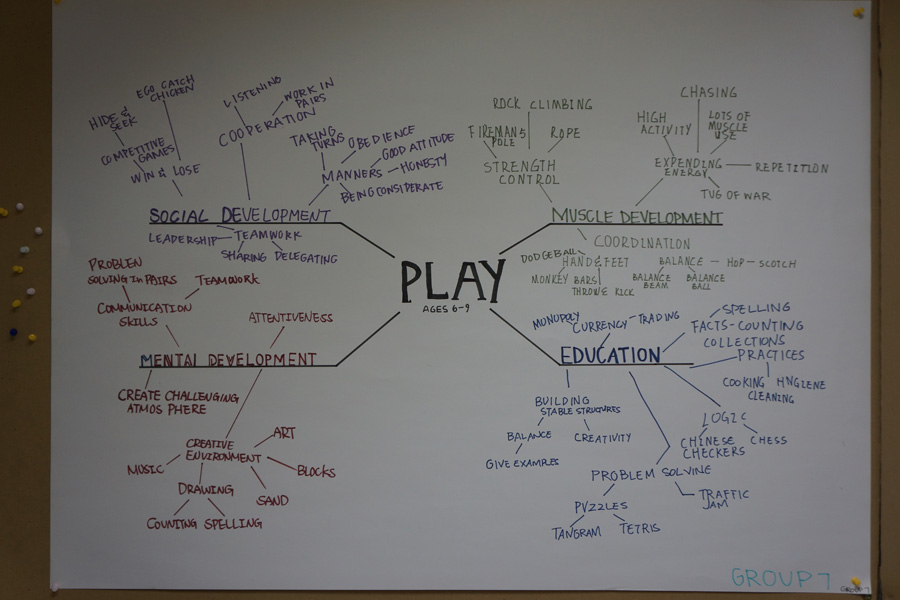 EGG CATCH
CHICKEN
HIDE &
SEEK
COMPETITIVE
GAMES
WIN & LOSE
LISTENING
WORK IN
PAIRS
COOPERATION
TAKING
TURNS
OBEDIENCE
GOOD ATTITUDE
MANNERS
HONESTY
BEING CONSIDERATE
SOCIAL DEVELOPMENT
LEADERSHIP
TEAMWORK
SHARING
DELEGATING
ROCK CLIMBING
FIREMANS
POLE
ROPE
STRENGTH
CONTROL
CHASING
HIGH
ACTIVITY
LOTS OF
MUSCLE
USE
EXPENDING
ENERGY
REPETITION
TUG OF WAR
MUSCLE DEVELOPMENT
COORDINATION
DODGEBALL
HAND & FEET
MONKEY BARS
THROW & KICK
BALANCE
HOP - SCOTCH
BALANCE
BEAM
BALANCE
BALL
PLAY
AGES 6-9
PROBLEN
SOLVING IN PAIRS
TEAMWORK
COMMUNICATION
SKILLS
ATTENTIVENESS
MENTAL DEVELOPMENT
CREATE CHALLENGING
ATMOS PHERE
CREATIVE
ENVIRONMENT
ART
MUSIC
BLOCKS
DRAWING
SAND
COUNITNG SPELLING
MONOPOLY
CURRENCY
TRADING
SPELLING
FACTS-COUNTING
COLLECTIONS
PRACTICES
EDUCATION
COOKING
HYGIENE
CLEANING
BUILDING
STABLE STRUCTURES
BALANCE
CREATIVITY
GIVE EXAMPLES
LOGIC
CHINESE
CHECKERS
CHESS
PROBLEM SOLVING
PUZZLES
TRAFFIC
JAM
TANGRAM
TETRIS
GROUP 7
GROUP 7